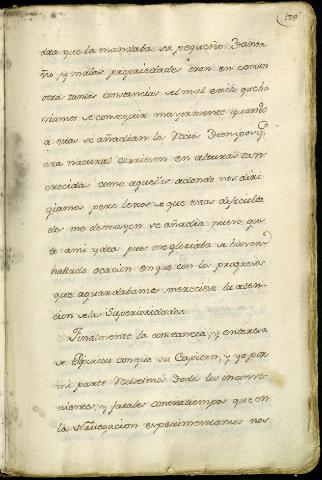 179
dra que la mandaba, su pequeño Tama
ño, y malas propriedades eran en comun
otra tantas constancias del mal exito que ha
viamos de conseguir mayormente quando
a estas se añadian los recios tiempos q.
era natural corriesen en alturas tan
crecidas como aquellas adonde nos diri
giamos pero lexos de que estas dificulta
des me desmayen se añadia nuevo gus
to a mi ydea pues me gloriaba de haver
hallado ocasion en que con los progresos
que aguardabamos mereciese la aten
cion de la Superioridad.
Finalmente la constancia, y entereza
de Espiritu con que su Capitan, y yo por
mi parte vencimos todos los inconve
nientes, y fatales contratiempos que en
la Navegacion experimentamos nos